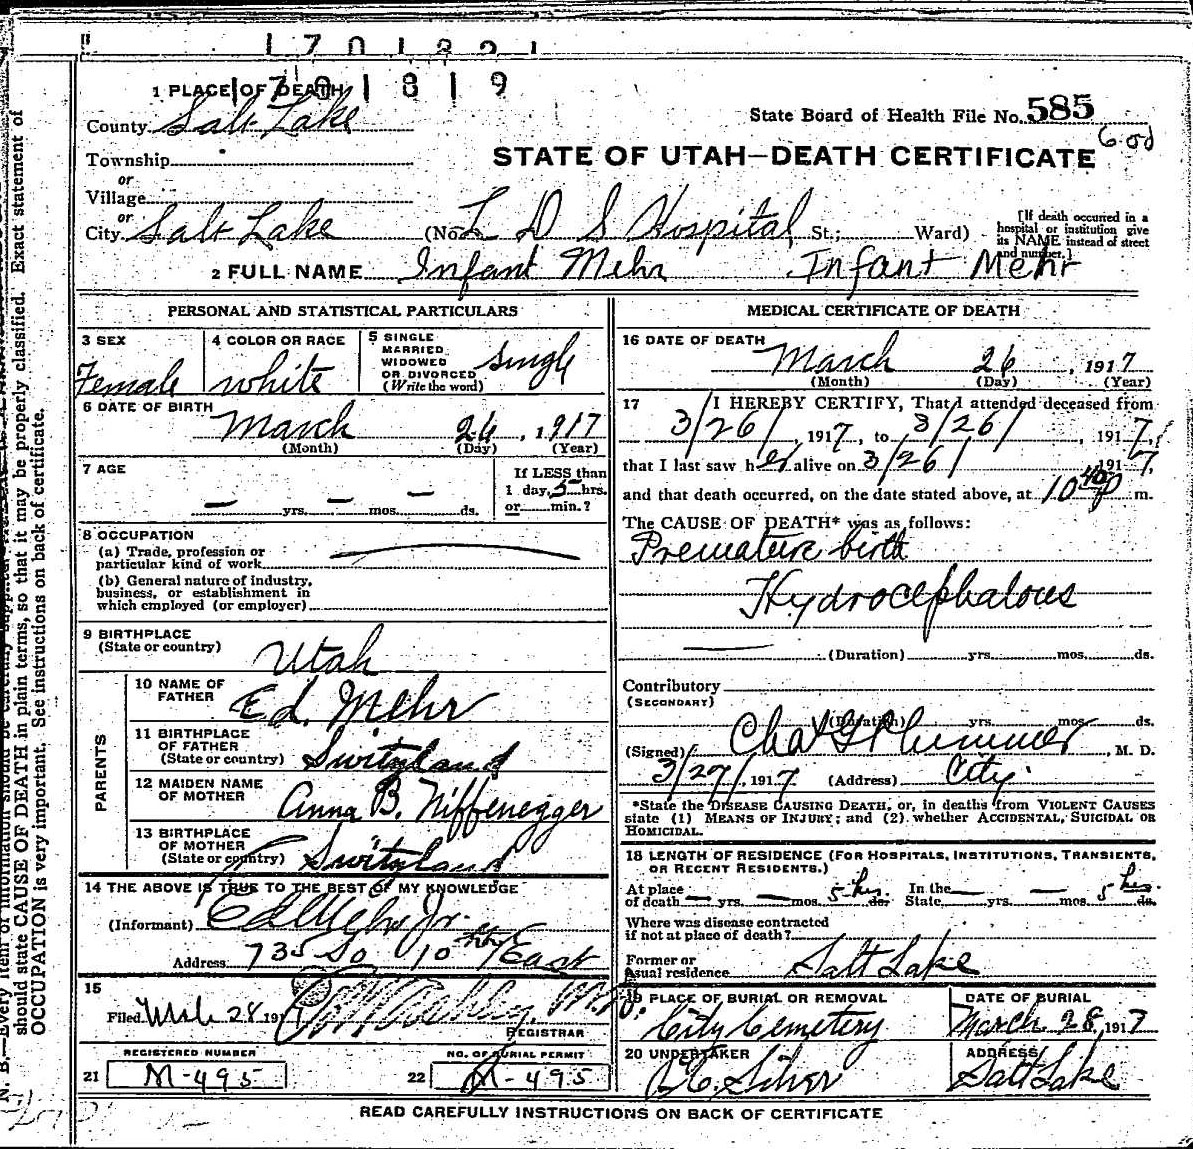 1 PLACE OF DEATH
1701819
County Salt Lake
State Board of Health File No. 585
Township
or
Village
STATE OF UTAH—DEATH CERTIFICATE
or
City Salt Lake (No. L D S Hospital St.; Ward)
[If death occurred in a hospital or institution give its NAME instead of street and number.]
2 FULL NAME Infant Mehr Infant Mehr
PERSONAL AND STATISTICAL PARTICULARS
3 SEX
Female
4 COLOR OR RACE
white
5 SINGLE
MARRIED
WIDOWED
OR DIVORCED
(Write the word)
single
6 DATE OF BIRTH
March 26, 1917
(Month) (Day) (Year)
7 AGE
— yrs. — mos. — ds.
If LESS than
1 day, 5 hrs.
or min.?
8 OCCUPATION
(a) Trade, profession or
particular kind of work
(b) General nature of industry,
business, or establishment in
which employed (or employer)
9 BIRTHPLACE
(State or country)
Utah
PARENTS
10 NAME OF
FATHER
Ed. Mehr
11 BIRTHPLACE
OF FATHER
(State or country)
Switzland
12 MAIDEN NAME
OF MOTHER
Anna B. Niffenegger
13 BIRTHPLACE
OF MOTHER
(State or country)
Switzland
14 THE ABOVE IS TRUE TO THE BEST OF MY KNOWLEDGE
(Informant) Ed Mehr Jr.
Address 735 So 10th East
15
Filed Mch 28 191
REGISTRAR
REGISTERED NUMBER
21 M-495
NO. OF BURIAL PERMIT
22 M-495
MEDICAL CERTIFICATE OF DEATH
16 DATE OF DEATH
March 26, 1917
(Month) (Day) (Year)
17 I HEREBY CERTIFY, That I attended deceased from
3/26/, 1917, to 3/26/, 1917,
that I last saw her alive on 3/26/ 1917,
and that death occurred, on the date stated above, at 10 40 p m.
The CAUSE OF DEATH* was as follows:
Premature birth
Hydrocephalous
(Duration) yrs. mos. ds.
Contributory
(SECONDARY)
(Duration) yrs. mos. ds.
(Signed) Chas G Plummer, M. D.
3/27/, 1917 (Address) City
*State the DISEASE CAUSING DEATH, or, in deaths from VIOLENT CAUSES
state (1) MEANS OF INJURY; and (2) whether ACCIDENTAL, SUICIDAL OR
HOMICIDAL.
18 LENGTH OF RESIDENCE (FOR HOSPITALS, INSTITUTIONS, TRANSIENTS,
OR RECENT RESIDENTS.)
At place
of death — yrs. — mos. 5 hrs. ds.
In the
State — yrs. — mos. 5 hrs. ds.
Where was disease contracted
if not at place of death?
Former or
usual residence Salt Lake
19 PLACE OF BURIAL OR REMOVAL
City Cemetery
DATE OF BURIAL
March 28, 1917
20 UNDERTAKER
ADDRESS
Salt Lake
READ CAREFULLY INSTRUCTIONS ON BACK OF CERTIFICATE
should state CAUSE OF DEATH in plain terms, so that it may be properly classified. Exact statement of
OCCUPATION is very important. See instructions on back of certificate.